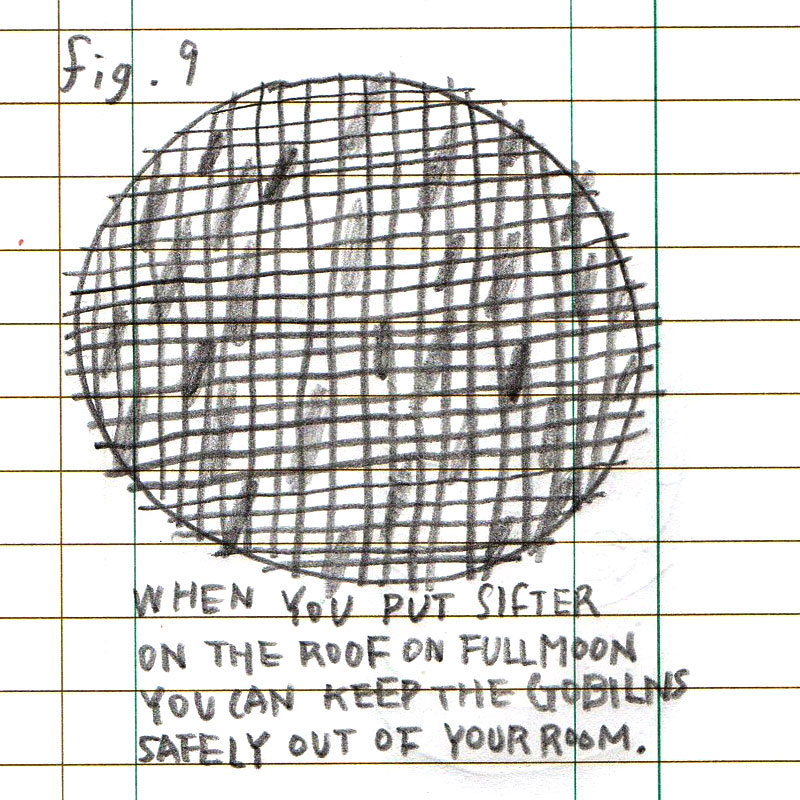 fig. 9
WHEN YOU PUT SIFTER
ON THE ROOF ON FULLMOON
YOU CAN KEEP THE GOBILNS
SAFELY OUT OF YOUR ROOM.